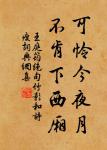 可怜今夜月
不肯下西厢
王庭筠绝句竹影和诗
瘦词典网集